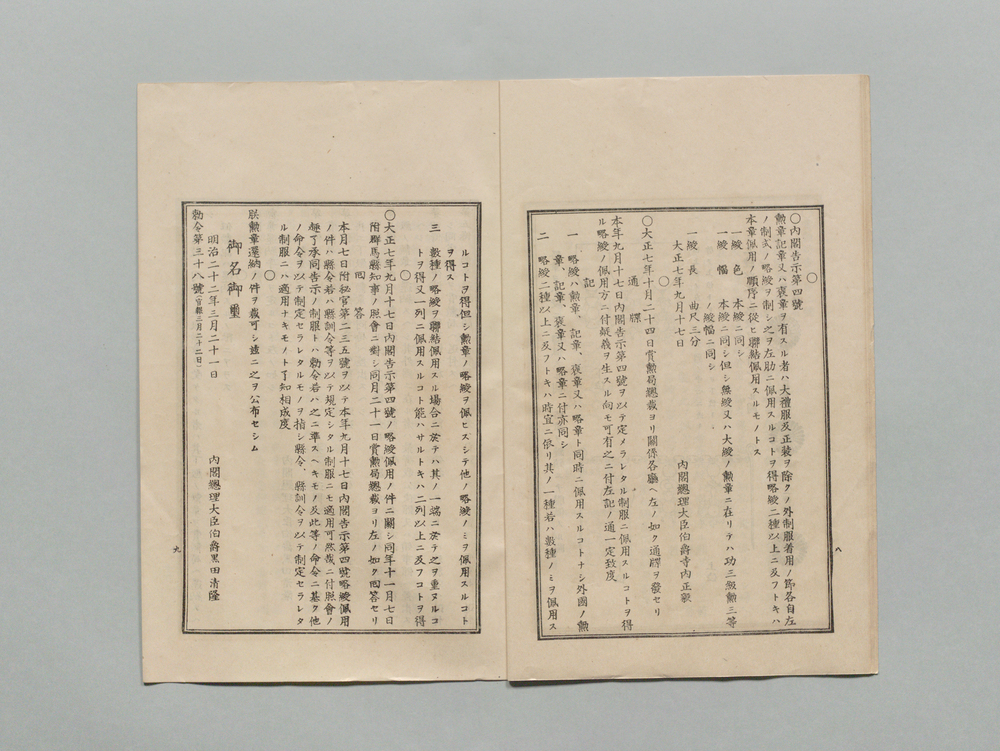 〇
〇內閣告示第四號
勲章記章又ハ褒章ヲ有スル者ハ大禮服及正裝ヲ除クノ外制服着用ノ節各自左
ノ制式ノ略綬ヲ制シ之ヲ左肋ニ佩用スルコトヲ得略綬二種以上ニ及フトキハ
本章佩用ノ順序ニ從ヒ聯結佩用スルモノトス
一綬　色　本綬ニ同シ
一綬　幅　本綬ニ同シ但シ無綬又ハ大綬ノ勲章ニ在リテハ功三級勲三等
ノ綬幅ニ同シ
一綬　長　曲尺三分
大正七年九月十七日
內閣總理大臣伯爵寺內正毅
〇
〇大正七年十月二十四日賞勲局總裁ヨリ關係各廳ヘ左ノ如ク通牒ヲ發セリ
通　牒
本年九月十七日內閣告示第四號ヲ以テ定メラレタル制服ニ佩用スルコトヲ得
ル略綬ノ佩用方ニ付疑義ヲ生スル向モ可有之ニ付左記ノ通一定致度
記
一　略綬ハ勲章、記章、褒章又ハ略章ト同時ニ佩用スルコトナシ外國ノ勲
章、記章、褒章又ハ略章ニ付亦同シ
二　略綬二種以上ニ及フトキハ時宜ニ依リ其ノ一種若ハ數種ノミヲ佩用ス
八
ルコトヲ得但シ勲章ノ略綬ヲ佩ヒズシテ他ノ略綬ノミヲ佩用スルコト
ヲ得ス
三　數種ノ略綬ヲ聯結佩用スル場合ニ於テハ其ノ一端ニ於テ之ヲ重ヌルコ
トヲ得又一列ニ佩用スルコト能ハサルトキハ二列以上ニ及フコトヲ得
〇
〇大正七年九月十七日內閣告示第四號ノ略綬佩用ノ件ニ關シ同年十一月七日
附群馬縣知事ノ照會ニ對シ同月二十一日賞勲局總裁ヨリ左ノ如ク回答セリ
回　答
本月七日附秘官第二三五號ヲ以テ本年九月十七日內閣告示第四號略綬佩用
ノ件ハ縣令若ハ縣訓令等ヲ以テ規定シタル制服ニモ適用可然哉ニ付照會ノ
趣了承同告示ノ制服トハ勅令若ハ之ニ準スヘキモノ及此等ノ命令ニ基ク他
ノ命令ヲ以テ制定セラレタルモノヲ指シ縣令、縣訓令ヲ以テ制定セラレタ
ル制服ニハ適用ナキモノト了知相成度
〇
朕勲章還納ノ件ヲ裁可シ茲ニ之ヲ公布セシム
御名御璽
明治二十二年三月二十一日
內閣總理大臣伯爵黑田清隆
勅令第三十八號(官報三月二十二日)
九